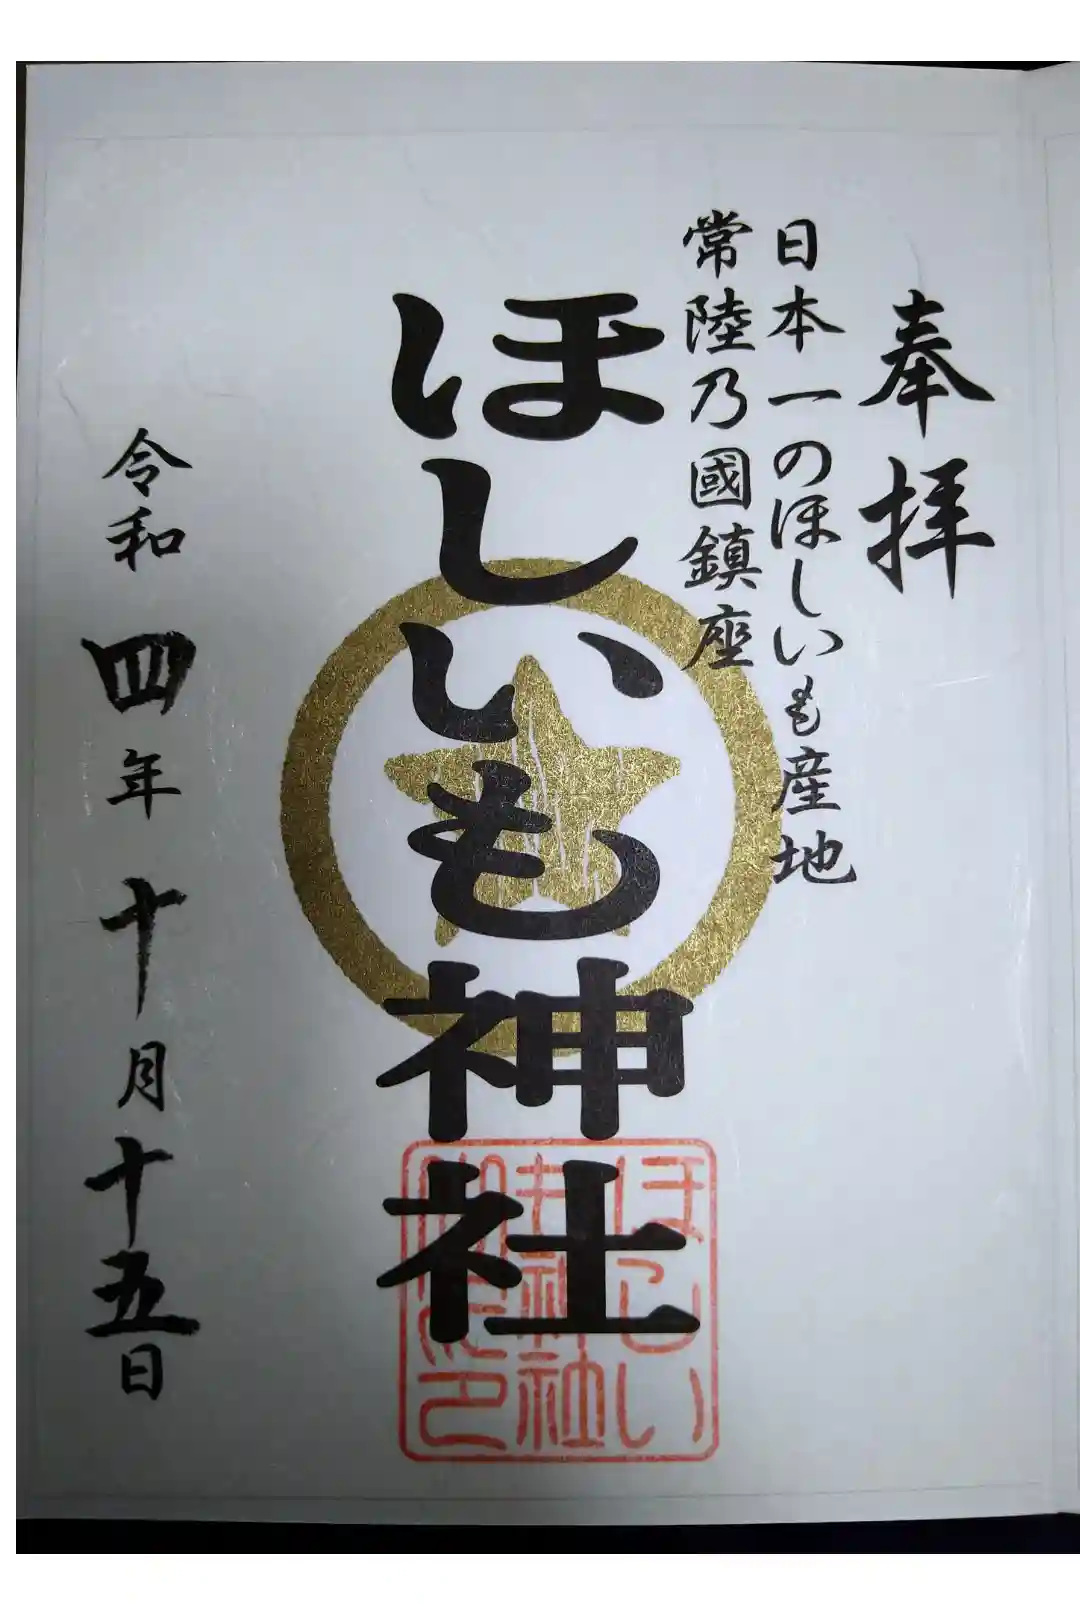 奉拝
日本一のほしいも産地
常陸乃國鎮座
ほしいも神社
令和四年十月十五日
ほしい
も神社